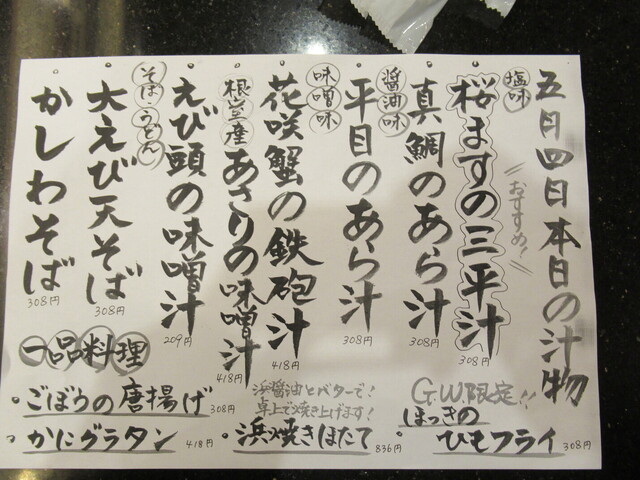 五月四日本日の汁物
塩味
おすすめ!
桜ますの三平汁
308円
真鯛のあら汁
308円
醤油味
平目のあら汁
308円
味噌味
花咲蟹の鉄砲汁
418円
根室産
あさりの味噌汁
418円
えび頭の味噌汁
209円
そば・うどん
大えび天そば
308円
かしわそば
308円
一品料理
・ごぼうの唐揚げ 308円
・かにグラタン 418円
浜醤油とバターで!
卓上で焼き上げます!
・浜焼きほたて 836円
G.W限定!!
・ほっきの
ひもフライ 308円